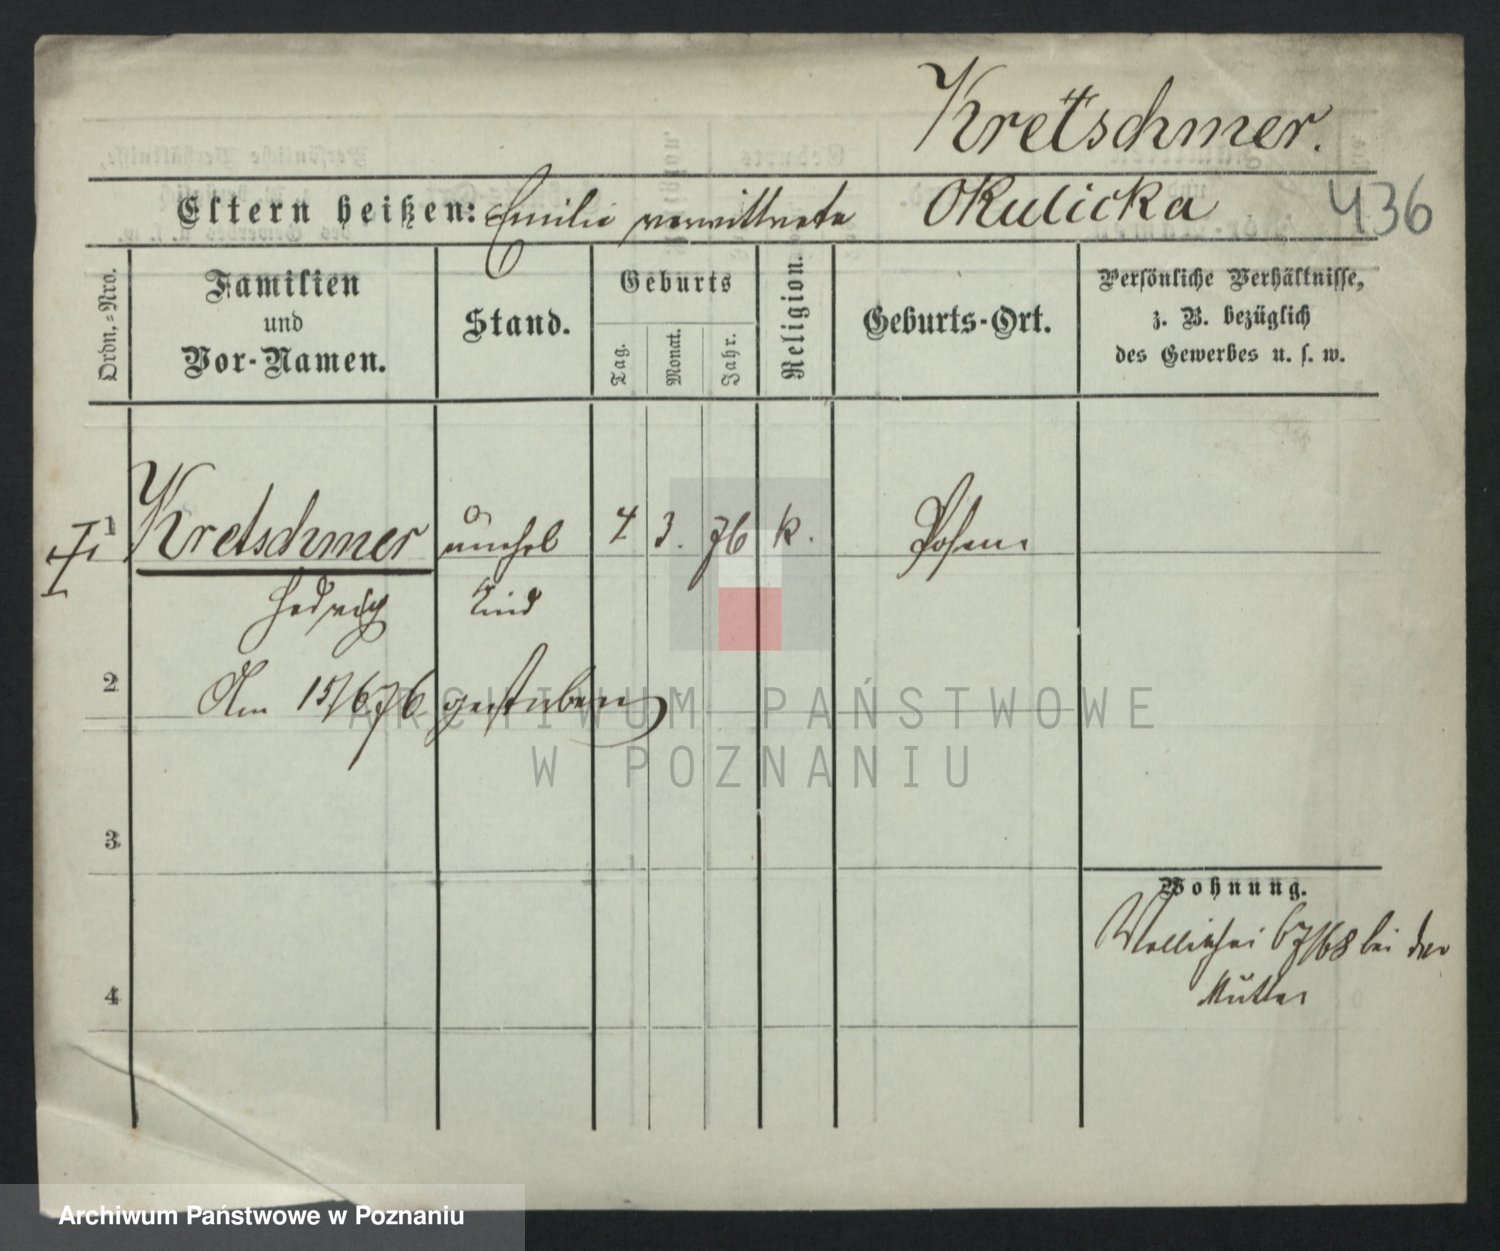 Kretschmer.
Eltern heißen: Emilie verwittwete Okulicka 436
Ordn.-Nro.
Familien
und
Vor-Namen.
Stand.
Geburts
Tag.
Monat.
Jahr.
Religion.
Geburts-Ort.
Persönliche Verhältnisse,
z. B. bezüglich
des Gewerbes u. s. w.
1 Kretschmer unehel 4 3. 76 k. Posen
Hedwig Kind
2 Am 15/6 76 gestorben
ARCHIWUM PAŃSTWOWE
W POZNANIU
3
Wohnung.
Wallischei 67/68 bei der
Mutter
4
Archiwum Państwowe w Poznaniu